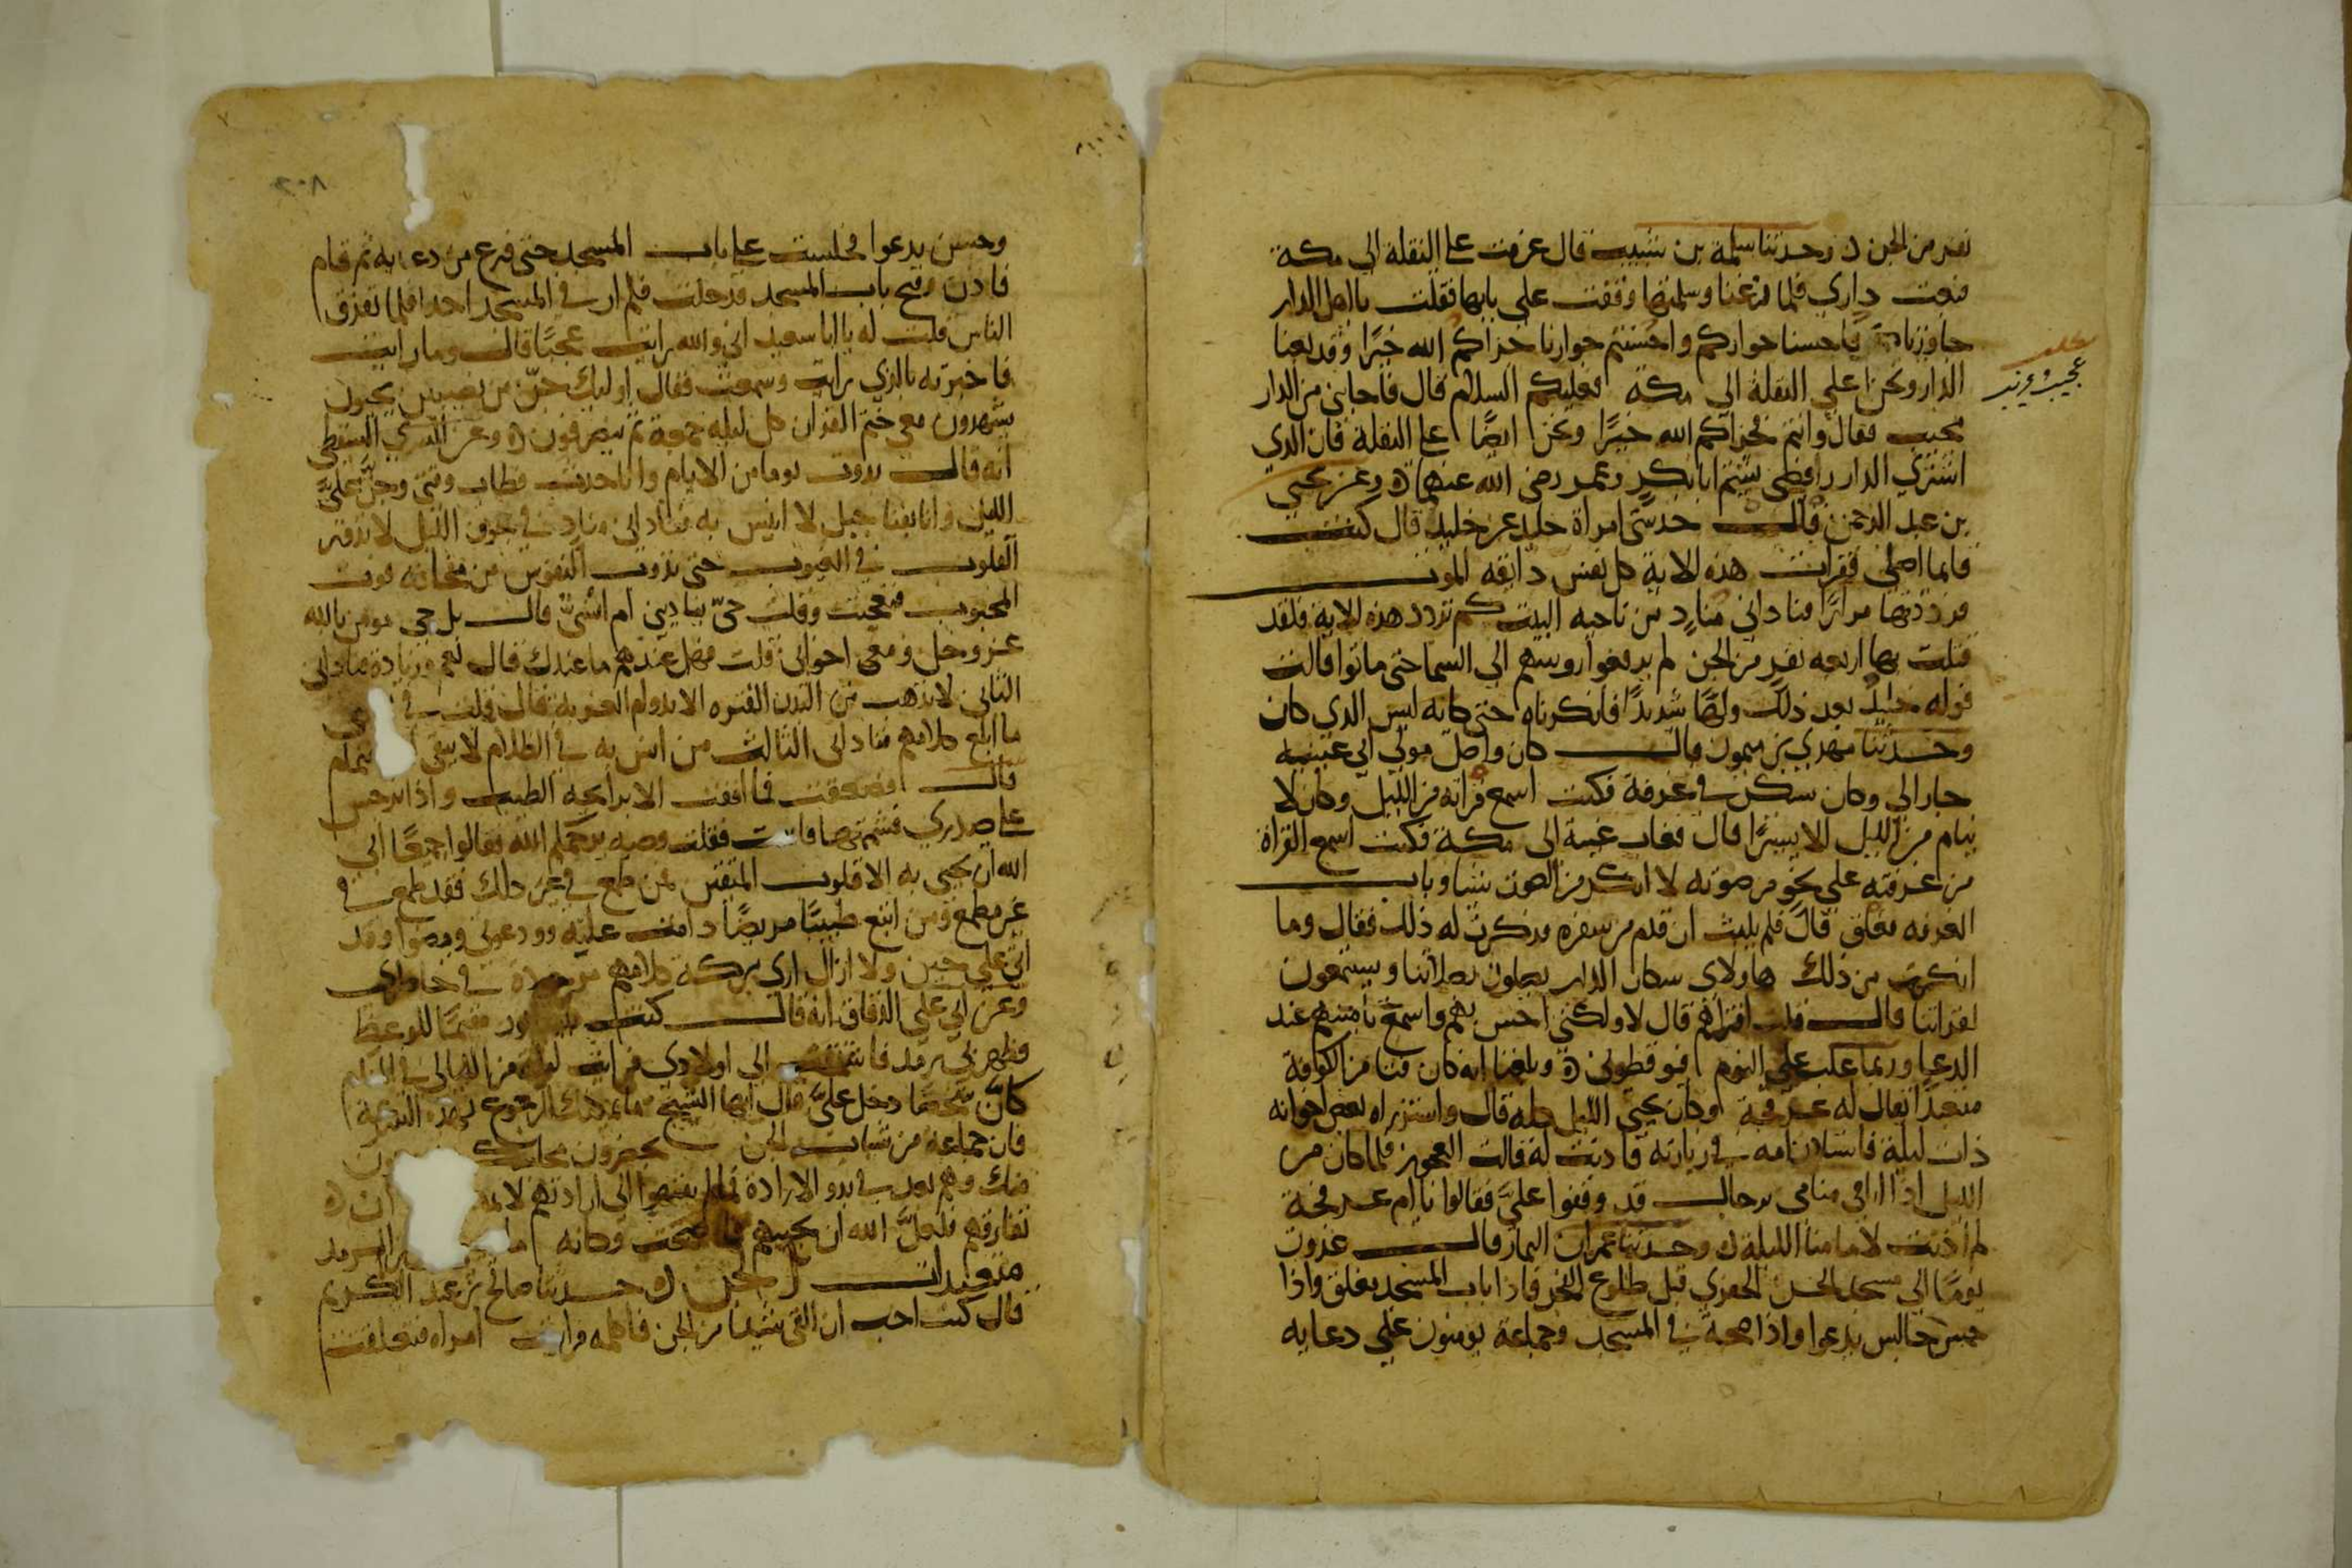 نفر من الجن ۵ وحدثنا سلمة بن شبيب قال عزمت علي النقلة الي مكة
فبعت داري فلما فرغنا وسلمتها وقفت علي بابها فقلت يا اهل الدار
جاورناكم فاحسنا جواركم واحسنتم جوارنا جزاكم الله خيرًا وقد بعنا
الدار ونحن علي النقلة الي مكة فعليكم السلام قال فاجابني من الدار
مجيب فقال وانتم فجزاكم الله خيرًا ونحن ايضًا علي النقلة فان الذي
اشتري الدار رافضي يشتم ابا بكر وعمر رضي الله عنهما ۵ وعن يحيي
بن عبد الرحمن قال حدثتني امراة خليد عن خليد قال كنت
قايما اصلي فقرات هذه الاية كل نفس ذايقه الموت
فرددتها مرارًا فناداني منادٍ من ناحيه البيت كم تردد هذه الاية فلقد
قتلت بها اربعه نفر من الجن لم يرفعوا روسهم الي السما حتي ماتوا قالت
فوله خليد بعد ذلك ولهًا شديدًا فانكرناه حتي كانه ليس الذي كان
وحدثنا مهدي بن ميمون قال كان واصل مولي ابي عيينه
جارا لي وكان يسكن في غرفة فكنت اسمع قراته من الليل وكان لا
ينام من الليل الا يسيرًا قال فغاب غيبة الي مكة فكنت اسمع القراة
من غرفته علي نحو من صوته لا انكر من الصوت شيا وباب
الغرفه مغلق قال فلم يلبث ان قدم من سفره فذكرت له ذلك فقال وما
انكرت من ذلك هاولاي سكان الدار يصلون بصلاتنا ويستمعون
لقراتنا قال قلت افتراهم قال لا ولكني احس بهم واسمع تامينهم عند
الدعا وربما غلب علي النوم فيوقظوني ۵ وبلغنا انه كان فتا من الكوفة
متعبدًا يقال له عرفجة وكان يحيي الليل كله قال واستزاره بعض اخوانه
ذات ليلة فاستاذن امه في زيارته فاذنت له قالت العجوز فلما كان من
الليل اذا انا في منامي برجال قد وقفوا عليَّ فقالوا يا ام عرفجة
لم اذنت لامامنا الليلة ۵ وحدثنا عمران التمار قال غدوت
يومًا الي مسجد الحسن الجفري قبل طلوع الفجر فاذا باب المسجد مغلق واذا
حسن جالس يدعوا واذا ضجة في المسجد وجماعة يومنون علي دعايه
عجيب
٢٠٨
وحسن يدعوا فجلست علي باب المسجد حتي فرغ من دعايه ثم قام
فاذن وفتح باب المسجد فدخلت فلم ار في المسجد احدا فلما تفرق
الناس قلت له يا ابا سعيد اني والله رايت عجبًا قال وما رايت
فاخبرته بالذي رايت وسمعت فقال اوليك جنّ من نصيبين يجيون
يشهدون معي ختم القران كل ليلة جمعة ثم ينصرفون ۵ وعن السري السقطي
انه قال بدوت يوما من الايام وانا حدث فطاب وقتي وجنَّ عليَّ
الليل وانا بفنا جبل لا انيس به فناداني منادٍ في جوف الليل لا تدور
القلوب في الغيوب حتي تذوب النفوس من مخافه فوت
المحبوب فتعجبت وقلت جنّي يناديني ام انسيّ قال بل جني مومن بالله
عز وجل ومعي اخواني قلت فهل عندهم ما عندك قال نعم وزيادة فناداني
الثاني لا تذهب من البدن الفتره الا بدوام الغربة قال قلت في
ما ابلغ كلامهم فناداني الثالث من انس به في الظلام لا يبقي له اهتمام
قال فصعقت فما افقت الا برايحه الطيب واذا نرجس
علي صدري فشممتها فافقت فقلت وصيه يرحمكم الله فقالوا جميعًا ابي
الله ان يحيي به الا قلوب المتقين فمن طمع في غير ذلك فقد طمع في
غير مطمع ومن اتبع طبيبًا مريضًا دامت علته وودعوني ومضوا وقد
اتي علي حين ولا ازال اري بركة كلامهم موجودة في خاطري
وعن ابي علي الدقاق انه قال كنت بنيسابور مقيمًا للوعظ
فظهر بي رمد فاشتقت الي اولادي فرايت ليلة من الليالي في المنام
كانَّ شخصًا دخل عليَّ وقال ايها الشيخ ما يمكنك الرجوع بهذه السرعة
فان جماعة من شباب الجن يحضرون مجلسك
منك وهم بعد في بدو الارادة فما لم ينتهوا الي ارادتهم لا يمكنك ان
تفارقهم فلعلَّ الله ان يجيبهم فاصبحت وكانه ما الرمد
متعبدات الجن ۵ حدثنا صالح بن عبد الكريم
قال كنت احب ان القي شيا من الجن فاكلمه فرايت امراه فتعلقت